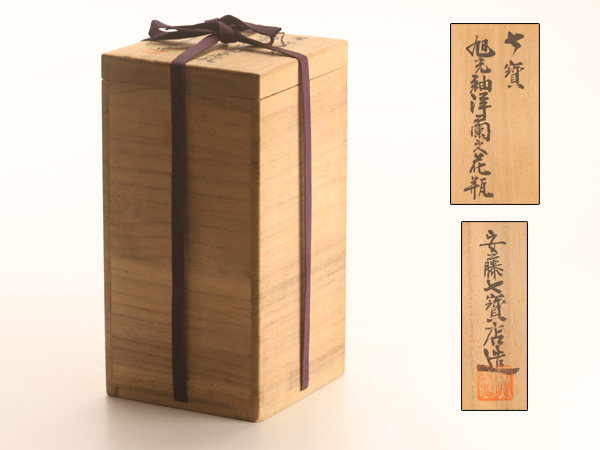 七寳
旭光釉洋蘭文花瓶
安藤七寳店造